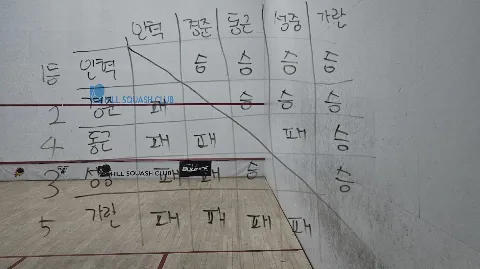 인혁 경준 동근 성중 가란
1등 인혁 승 승 승 승
2 경준 패 승 승 승
HILL SQUASH CLUB
4 동근 패 패 패 승
3 패 패 승 승
HILL SQUASH CLUB
5 가란 패 패 패 패